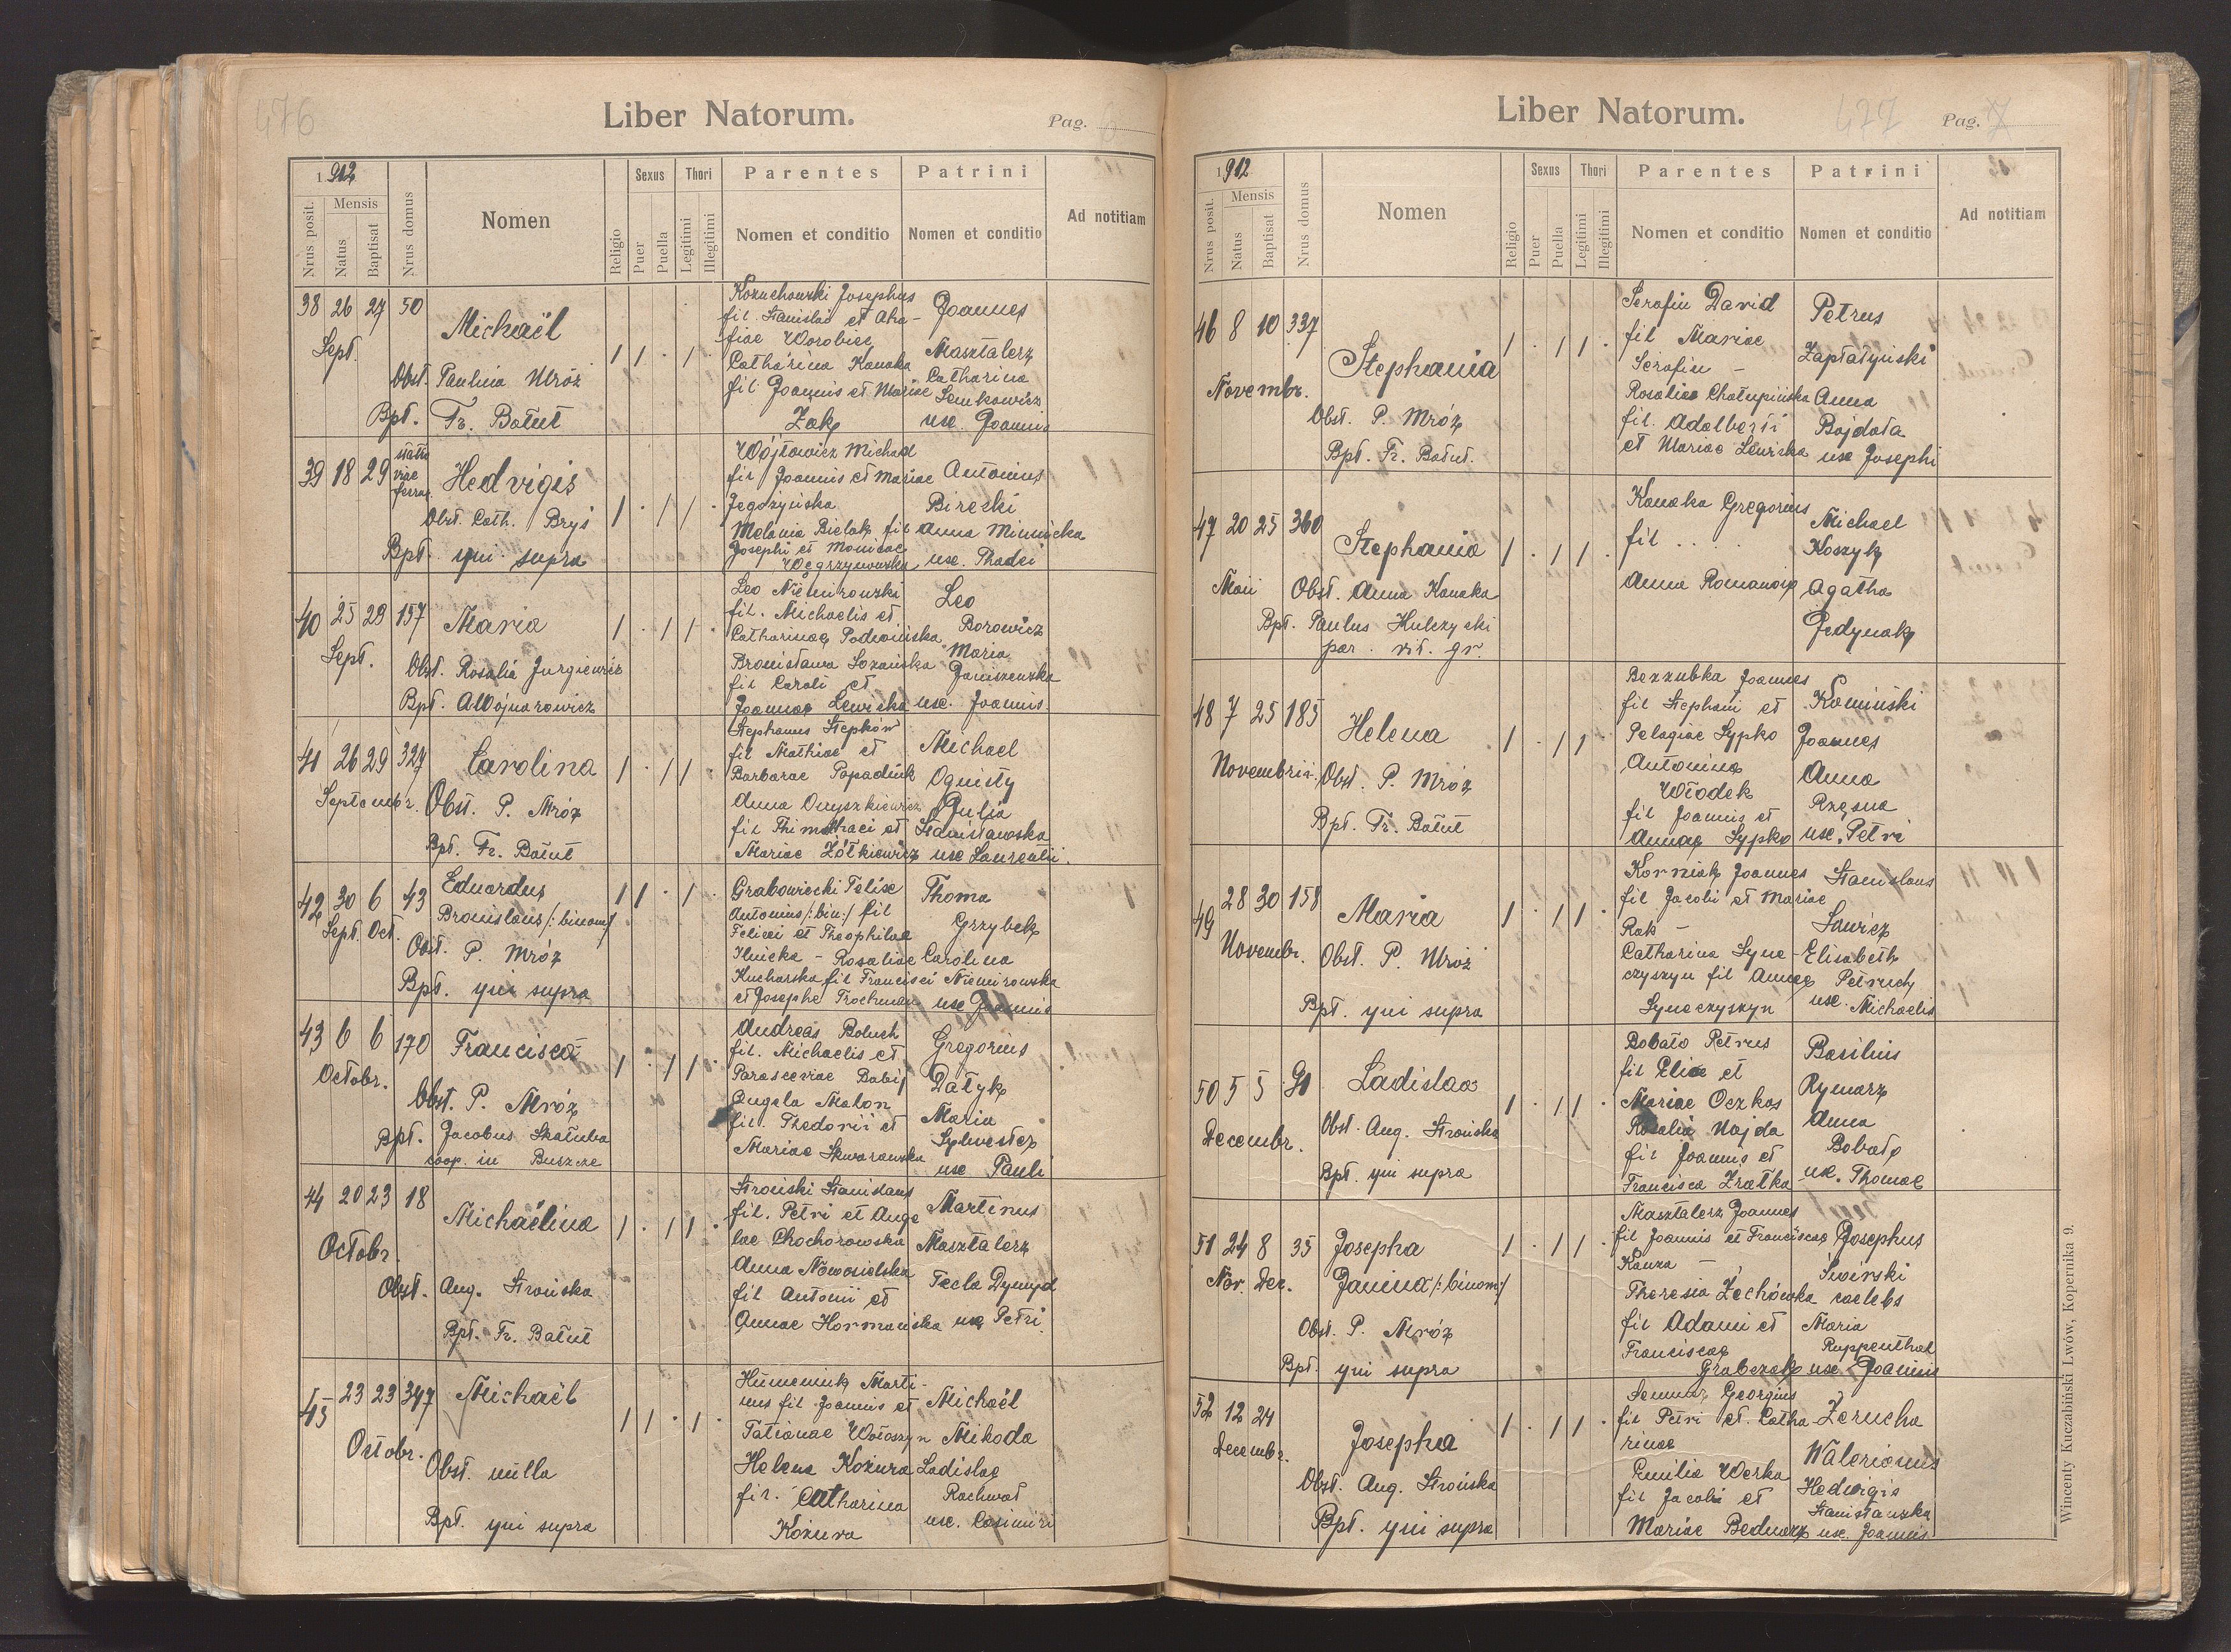 476
Liber Natorum.
Pag. 6
1912
Nrus posit.
Mensis
Natus
Baptisat
Nrus domus
Nomen
Religio
Sexus
Puer
Puella
Thori
Legitimi
Illegitimi
Parentes
Nomen et conditio
Patrini
Nomen et conditio
Ad notitiam
38 26 27 50
Sept.
Michaël
Obst. Paulina Mróz
Bpt. Fr. Bałut
1 1 . 1 .
Kozuchowski Josephus
fil. Stanislai et Aha-
fiae Worobiec
Catharina Kanaka
fil Joannis et Mariae
Żak
Joannes
Masztalerz
Catharina
Senkowicz
uxe Joannis
39 18 29 statio
viae
ferrae
Hedvigis
Obst. Cath. Bryś
Bpt. qui supra
1 . 1 1 .
Wójtowicz Michael
fil Joannis et Mariae
Jegożyńska
Melania Bielak fil
Josephi et Monicae
Węgrzynowska
Antonius
Birecki
Anna Miśnicka
uxe. Thadei
40 25 29 157
Sept.
Maria
Obst. Rosalia Jurgiewicz
Bpt. A Wójnarowicz
1 . 1 1 .
Leo Niemirowski
fil. Michaelis et
Catharinae Podwińska
Bronisława Łozańska
fil Caroli et
Joannae Lewicka
Leo
Borowicz
Maria
Janiszewska
uxe. Joannis.
41 26 29 327
Septembr.
Carolina
Obst. P. Mróz
Bpt. Fr. Bałut
1 . 1 1 .
Stephanus Stepków
fil Mathiae et
Barbarae Popadiuk
Anna Onyszkiewicz
fil Thimothaei et
Mariae Żółkiewicz
Michael
Ognisty
Julia
Stanisławska
uxe Laurentii.
42 30 6 43
Sept. Oct.
Eduardus
Bronislaus /: binom/
Obst. P. Mróz
Bpt. qui supra
1 1 . 1 .
Grabowiecki Felix
Antonius /: bin:/ fil
Felicei et Theophilae
Ilnicka - Rosaliae
Kucharska fil Francisci
et Josephe Trochman
Thoma
Grzybek
Carolina
Niemirowska
uxe Joannis
43 6 6 170
Octobr.
Francisca
Obst. P. Mróz
Bpt. Jacobus Skałuba
coop. in Buszcze
1 . 1 1 .
Andreas Boluch
fil. Michaelis et
Parasceviae Babij
Angela Malon
fil. Thedorii et
Mariae Skwarawska
Gregorius
Datyk
Maria
Sylwester
uxe Pauli
44 20 23 18
Octobr.
Michaëlina
Obst. Aug. Strońska
Bpt. Fr. Bałut
1 . 1 1 .
Stroński Stanislaus
fil. Petri et Ange
lae Chochorowska
Anna Nowosielska
fil Antonii et
Annae Hormańska
Martinus
Masztalerz
Tecla Dymyd
uxe Petri.
45 23 23 347
Octobr.
Michaël
Obst. nulla
Bpt. qui supra
1 1 . 1 .
Humeniuk Marti-
nus fil Joannis et
Tatianae Wołoszyn
Helena Kozura
fil. Catharina
Kożura
Michaël
Mikoda
Ladislae
Rachwał
uxe. Casimiri
Liber Natorum.
477
Pag. 7
1912
Nrus posit.
Mensis
Natus
Baptisat
Nrus domus
Nomen
Religio
Sexus
Puer
Puella
Thori
Legitimi
Illegitimi
Parentes
Nomen et conditio
Patrini
Nomen et conditio
Ad notitiam
46 8 10 337
Novembr.
Stephania
Obst. P. Mróz
Bpt. Fr. Bałut.
1 . 1 1 .
Serafin David
fil Mariae
Serafin -
Rosaliae Chałupińska
fil. Adalberti
et Mariae Lewicka
Petrus
Zapłatyński
Anna
Bajdała
uxe Josephi
47 20 25 360
Maii
Stephania
Obst. Anna Kanaka
Bpt. Paulus Hulczycki
par. rit. gr.
1 . 1 1 .
Kanaka Gregorius
fil . . . .
Anna Romanow
Michael
Koszyk
Agatha
Jedynak
48 7 25 185
Novembris.
Helena
Obst. P. Mróz
Bpt. Fr. Bałut
1 . 1 1 .
Bezzubka Joannes
fil Stephani et
Pelagiae Sypko
Antonina
Włodek
fil Joannis et
Annae Sypko
Komiński
Joannes
Anna
Rzęsna
uxe. Petri
49 28 30 158
Novembr.
Maria
Obst. P. Mróz
Bpt. qui supra
1 . 1 1 .
Korniak Joannes
fil Jacobi et Mariae
Rak -
Catharina Syne-
czyszyn fil Annae
Syneczyszyn
Stanislaus
Sawicz
Elisabeth
Petruch
uxe. Michaelis
50 5 5 91
Decembr.
Ladislaa
Obst. Aug. Strońska
Bpt. qui supra
1 . 1 1 .
Bobało Petrus
fil Eliae et
Mariae Oczkos
Rosalia Najda
fil Joannis et
Francisca Zrałka
Basilius
Rymarz
Anna
Bobało
uxe. Thomae
51 24 8 35
Nov. Dec.
Josepha
Janina /: binom:/
Obst. P. Mróz
Bpt. qui supra
1 . 1 1 .
Masztalerz Joannes
fil Joannis et Franciscae
Kanza -
Theresia Zechówka
fil Adami et
Franciscae
Grabczak
Josephus
Świrski
caelebs
Maria
Ruppenthal
uxe. Joannis
52 12 24
Decembr.
Josepha
Obst. Aug. Strońska
Bpt. qui supra
1 . 1 1 .
Georgius
fil Petri et Catha
rinae
Emilia Werka
fil Jacobi et
Mariae Bednarz
Żerucha
Walerianus
Hedvigis
Stanisławska
uxe. Joannis
Wincenty Kuczabiński Lwów, Kopernika 9.